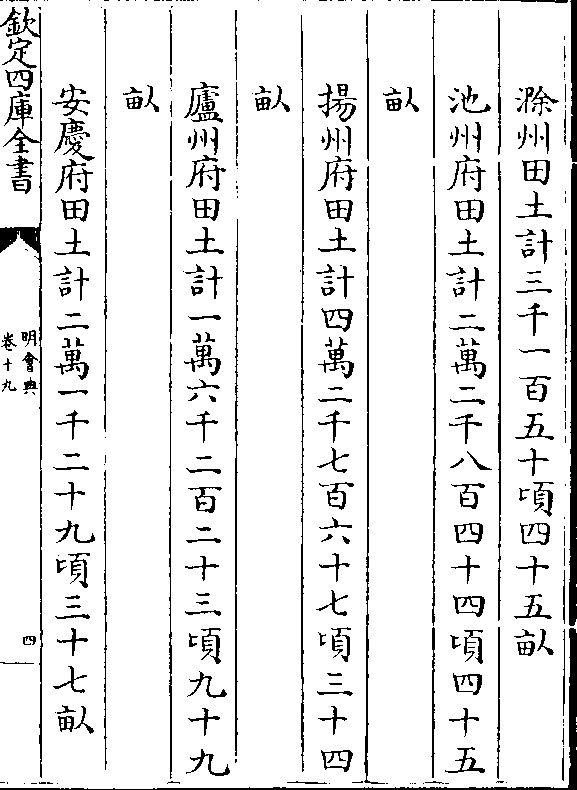 滁州田土計三千一百五十頃四十五畝
池州府田土計二萬二千八百四十四頃四十五
畝
揚州府田土計四萬二千七百六十七頃三十四
畝
廬州府田土計一萬六千二百二十三頃九十九
畝
安慶府田土計二萬一千二十九頃三十七畝
欽定四庫全書
明會典
卷十九
四